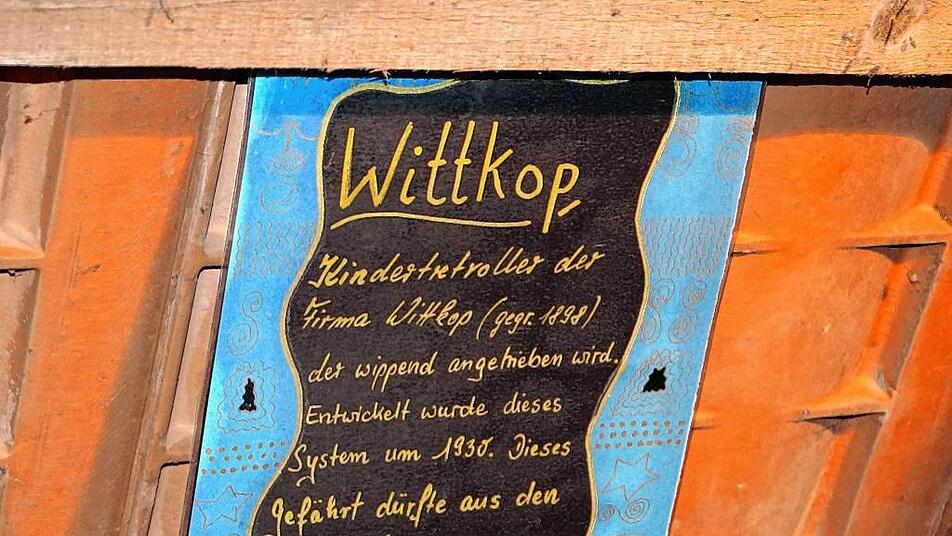 Wittkop
Kindertretroller der
Firma Wittkop (gegr. 1898)
der wippend angetrieben wird.
Entwickelt wurde dieses
System um 1930. Dieses
Gefährt dürfte aus den